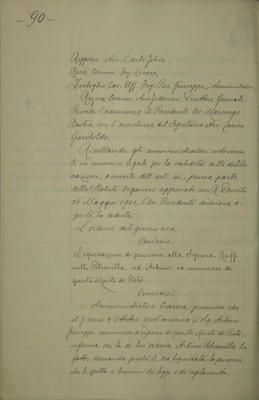 - 90 -
Rapponi Avv. Carlo Felice,
Rossi Comm. Ing. Cesare,
Cav. Uff. Ing. Pier Giuseppe, Amministratori
Comm. Avv. Federico, Direttore Generale.
Presiede l'adunanza il Presidente On. Marengo
coll'assistenza del Segretario Avv.
Garibaldo.
Risultando gli amministratori intervenu
ti in numero legale per la validità delle delibe
razioni, a mente dell'art. 32, prima parte
dello Statuto Organico approvato con R. Decreto
26 Maggio 1901, l'On. Presidente dichiara a
perta la seduta.
L'ordine del giorno reca
Omissis.
Liquidazione di pensione alla Signora Ruffi
netto Petronilla, ved. Arduino, ex commesso di
questo Monte di Pietà.
Omissis.
L'Amministratore premesso che
il giorno 9 Ottobre 1906 moriva il Sig. Arduino
Giuseppe commesso a riposo di questo Monte di Pietà,
informa che la di lui vedova Arduino Petronilla ha
fatto domanda perché le sia liquidata la pensione
che le spetta a termini di legge e di regolamento.